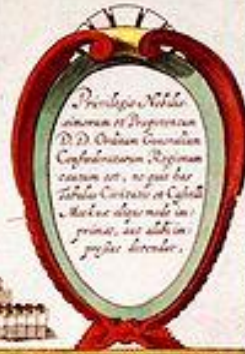 Privilegio Nobilis-
simorum et Præpotentum
D.D. Ordinum Generalium
Confœderatarum Regionum
cautum est, ne quis has
Tabulas Civitatis et Castelli
aliquo modo im-
primat, aut alibi im-
pressas